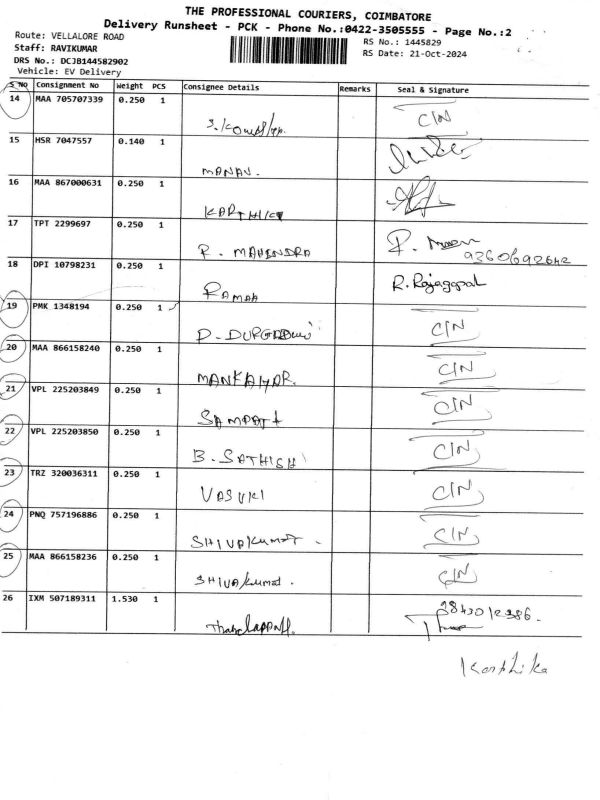 THE PROFESSIONAL COURIERS, COIMBATORE
Delivery Runsheet - PCK - Phone No.:0422-3505555 - Page No.:2
Route: VELLALORE ROAD
RS No.: 1445829
Staff: RAVIKUMAR
RS Date: 21-Oct-2024
DRS No.: DCJB144582902
Vehicle: EV Delivery
S No Consignment No Weight PCS Consignee Details Remarks Seal & Signature
14 MAA 705707339 0.250 1 C/N
15 HSR 7047557 0.140 1 MANAV.
16 MAA 867000631 0.250 1 KARTHICK
17 TPT 2299697 0.250 1 R. MAHINDRA
18 DPI 10798231 0.250 1 RAMAA R. Rajagopal
19 PMK 1348194 0.250 1 C/N
20 MAA 866158240 0.250 1 C/N
21 VPL 225203849 0.250 1 SAMPATH C/N
22 VPL 225203850 0.250 1 B. SATHISH C/N
23 TRZ 320036311 0.250 1 VASUKI C/N
24 PNQ 757196886 0.250 1 SHIVAKUMAR. C/N
25 MAA 866158236 0.250 1 SHIVAKUMAR. C/N
26 IXM 507189311 1.530 1
Karthika